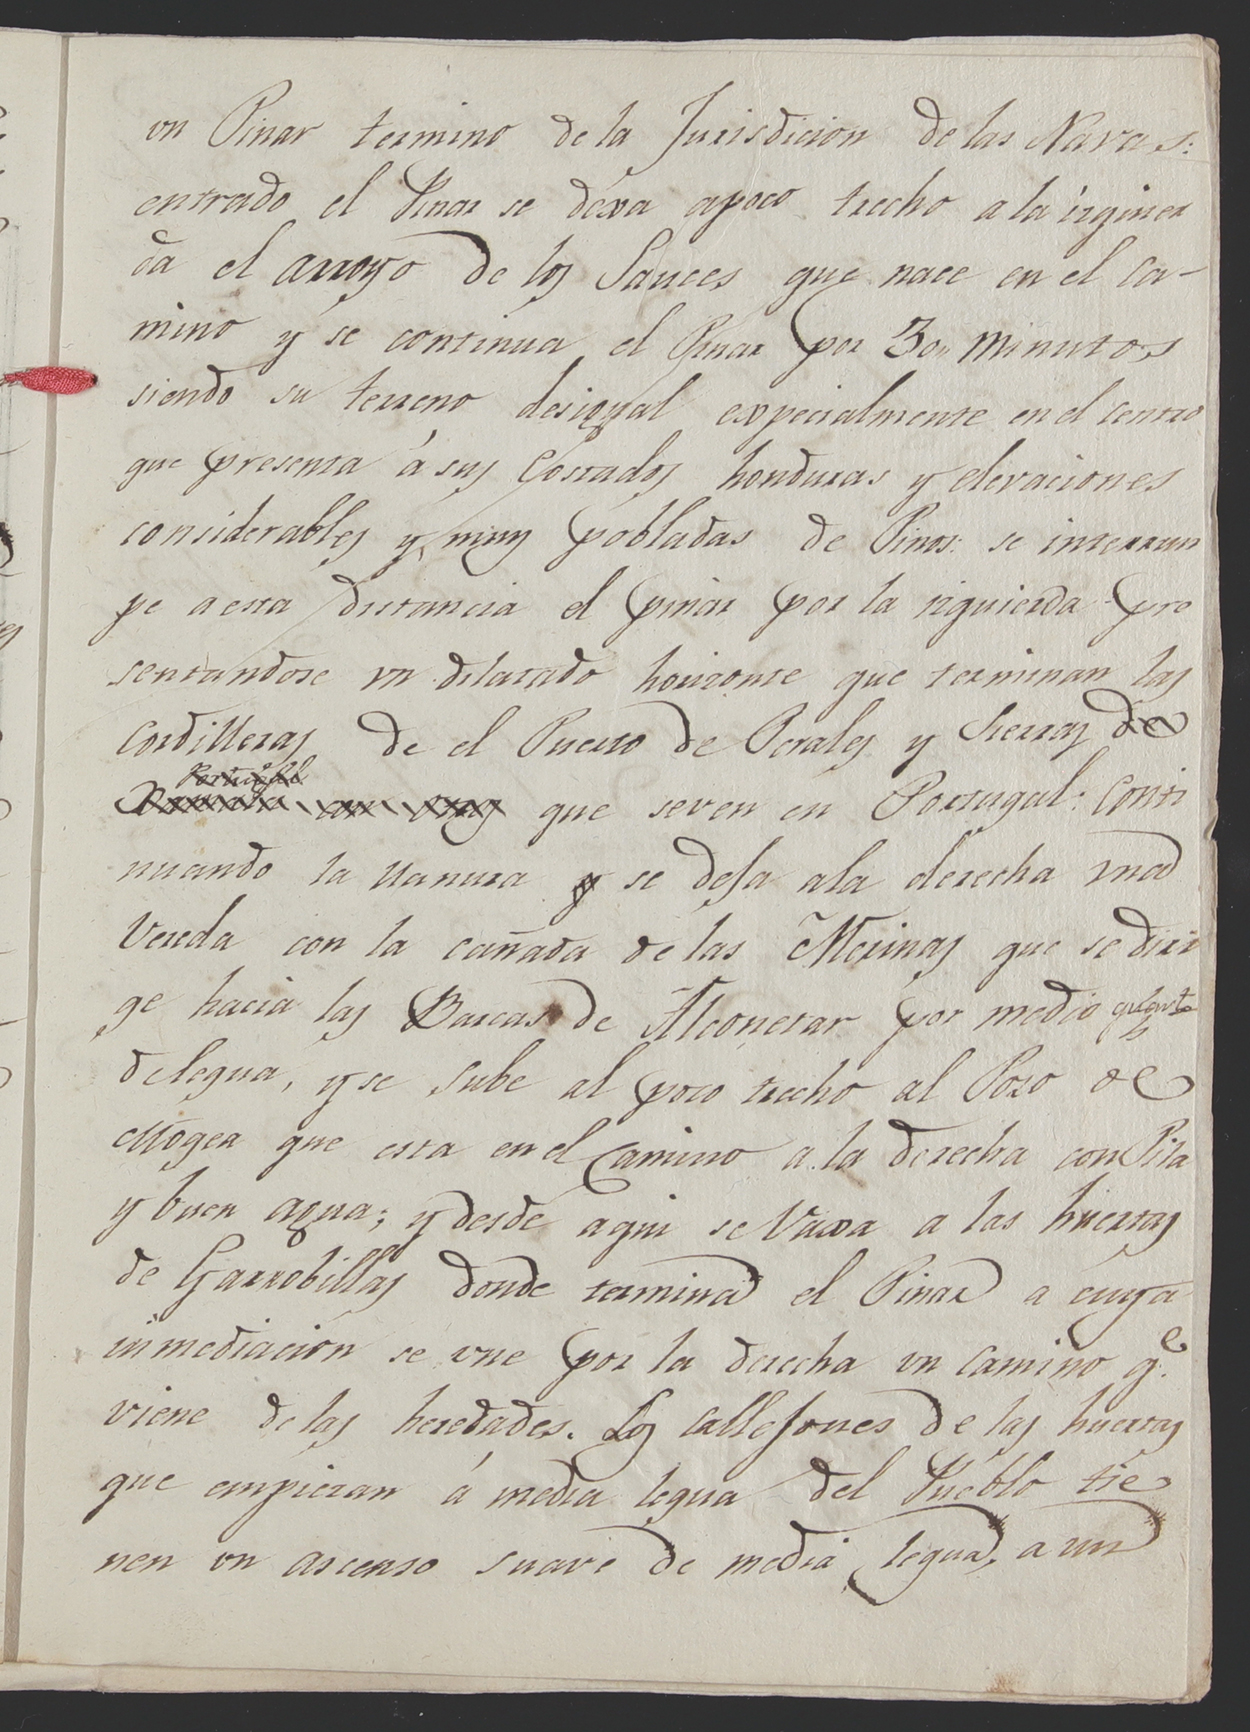 un Pinar termino de la Jurisdicion de las Navas:
entrado el Pinar se dexa apoco trecho a la izquier
da el arroyo de los Sauces que nace en el ca-
mino y se continua el Pinar por 30,, minutos
siendo su terreno desigual expecialmente en el centro
que presenta á sus Costados honduras y elevaciones
considerables y muy pobladas de Pinos: se interrum
pe a esta distancia el pinar por la izquierda pre
sentandose un dilatado horizonte que terminan las
Cordilleras de el Puerto de Perales y Sierras de
Portugal
que se ven en Portugal: Conti
nuando la llanura y se deja ala derecha una
Vereda con la cañada de las Merinas que se diri
ge hacia las Barcas de Alconetar por medio quarto
de legua, y se sube al poco trecho al Pozo de
Moger que esta en el Camino a la derecha con Pila
y buen agua; y desde aqui se Vaxa a las huertas
de Garrobillas donde termina el Pinar a cuya
inmediacion se une por la derecha un camino q.e
viene de las heredades. Los Callejones de las huertas
que empiezan á media legua del Pueblo tie
nen un ascenso suave de media legua, a un